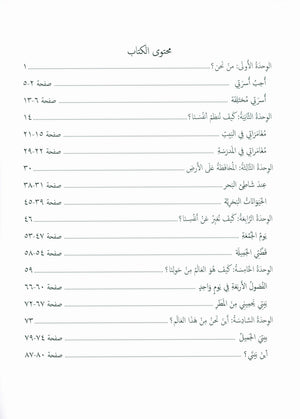 محتوى الكتاب
الوحدة الأولى: من نحن؟ ١
أحب أسرتي صفحة ٢-٥
أسرتي مختلفة صفحة ٦-١٣
الوحدة الثانية: كيف ننظم أنفسنا؟ ١٤
مغامراتي في البيت صفحة ١٥-٢١
مغامراتي في المدرسة صفحة ٢٢-٢٩
الوحدة الثالثة: المحافظة على الأرض ٣٠
عند شاطئ البحر صفحة ٣١-٣٨
الحيوانات البحرية صفحة ٣٩-٤٥
الوحدة الرابعة: كيف نعبر عن أنفسنا؟ ٤٦
يوم الجمعة صفحة ٤٧-٥٣
قطتي الجميلة صفحة ٥٤-٥٨
الوحدة الخامسة: كيف هو العالم من حولنا؟ ٥٩
الفصول الأربعة في يوم واحد صفحة ٦٠-٦٦
بيتي يحميني من المطر صفحة ٦٧-٧٢
الوحدة السادسة: أين نحن من هذا العالم؟ ٧٣
بيتي الجميل صفحة ٧٤-٧٩
أين بيتي؟ صفحة ٨٠-٨٧